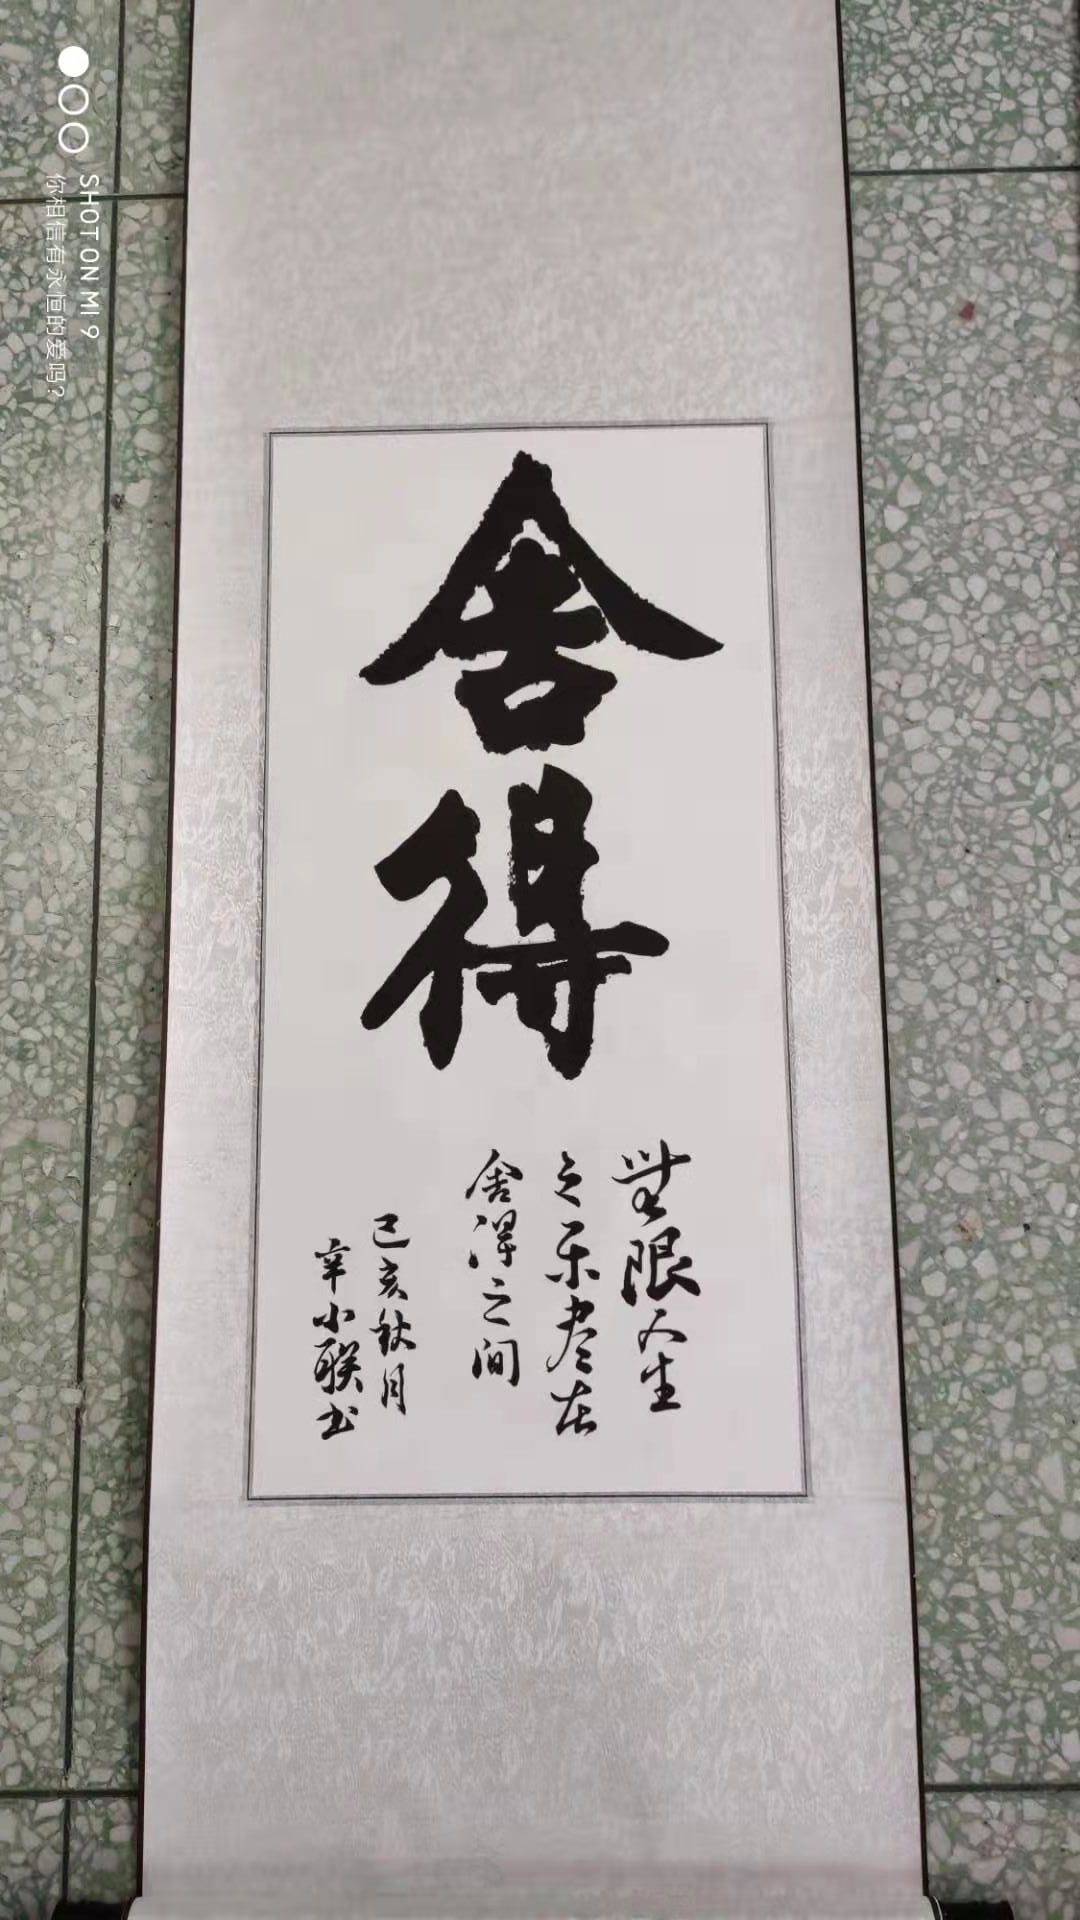 舍得
無限人生
之乐尽在
舍得之间
己亥秋月
辛小联书
SHOT ON MI 9
你相信有永恒的爱吗?